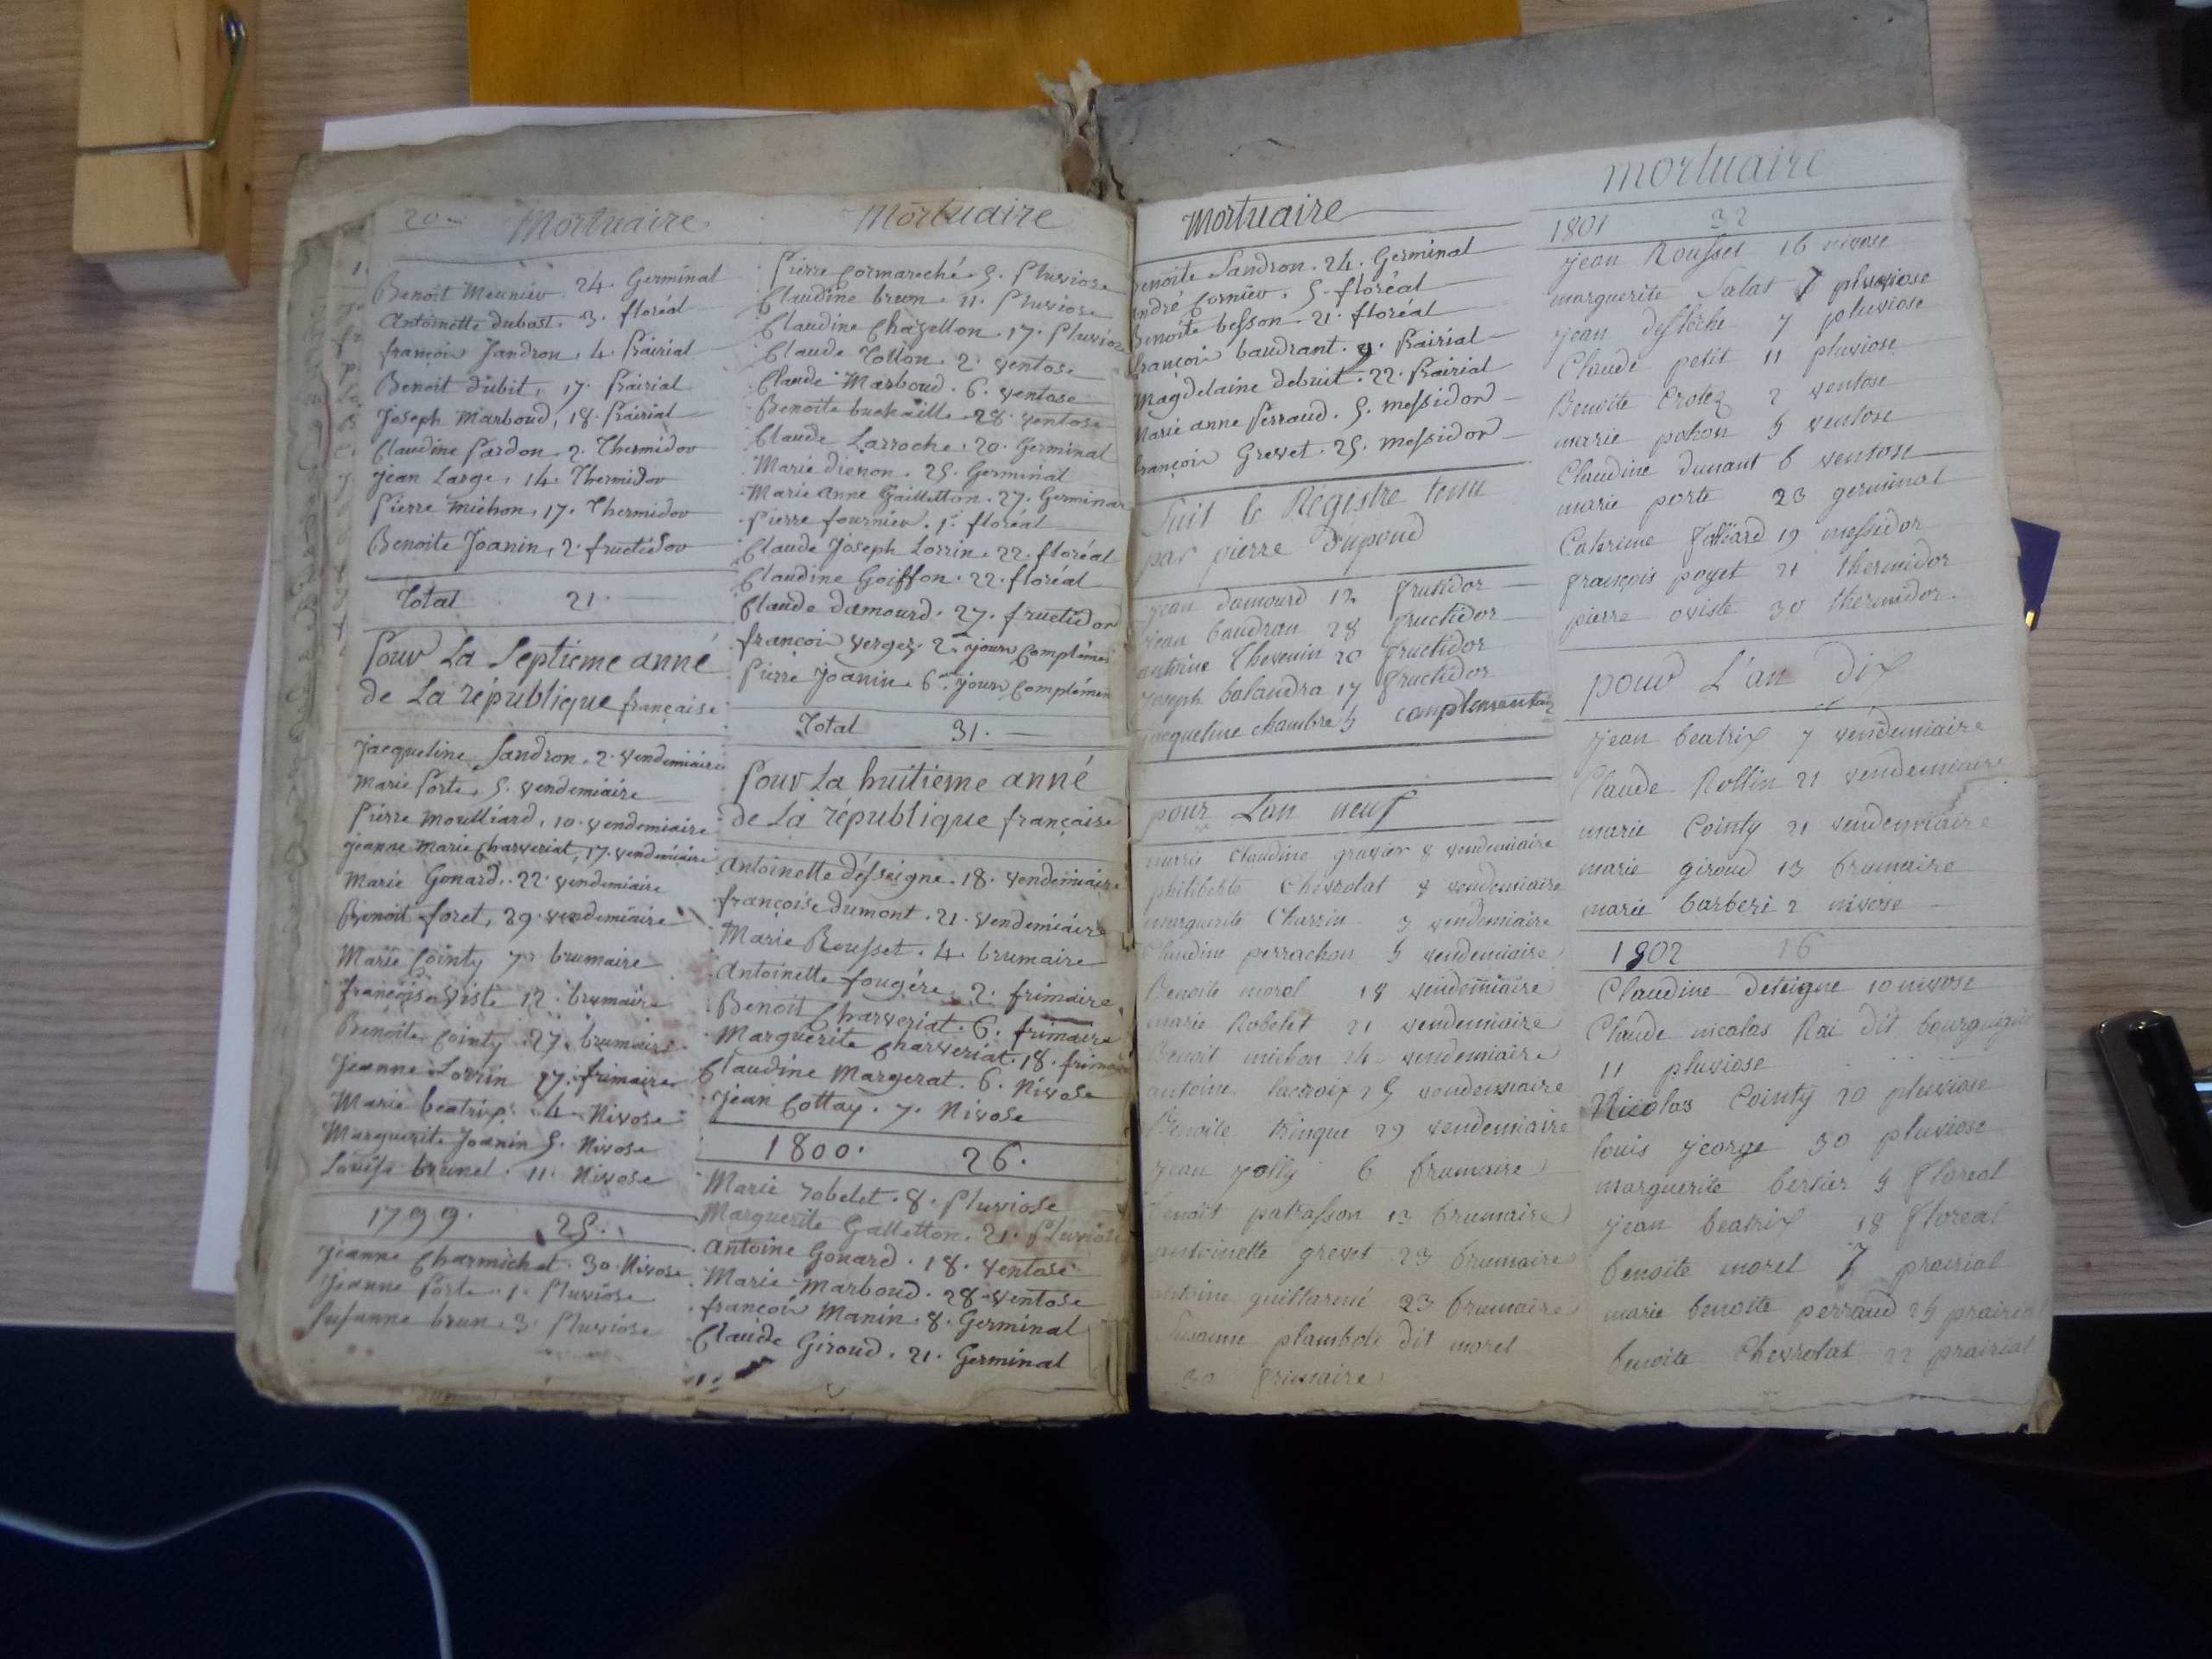 20
Mortuaire
Benoit Meunier. 24. Germinal
Antoinette dubost. 3. floréal
françois Sandron. 4. Prairial
Benoit dubit, 17. Prairial
Joseph Marboud, 18. Prairial
Claudine Pardon. 2. Thermidor
Jean Large, 14. Thermidor
Pierre Michon, 17. Thermidor
Benoite Joanin, 2. fructidor
Total 21.
Pour La Septieme anné
de La république française
Jacqueline Sandron. 2. Vendemiaire
Marie Porte, 5. Vendemiaire
Pierre Mouilliard, 10. Vendemiaire
Jeanne Marie Charveriat, 17. Vendemiaire
Marie Gonard. 22. Vendemiaire
Benoit foret, 29. Vendemiaire
Marie Cointy 7. brumaire
françoise Viste 12. brumaire
Benoite Cointy 27. brumaire
Jeanne Lorrin 27. frimaire
Marie beatrix. 4. Nivose
Marguerite Joanin 5. Nivose
Louise brunel. 11. Nivose
1799. 25.
Jeanne Charmichet. 30. Nivose
Jeanne Porte. 1. Pluviose
Susanne brun. 3. Pluviose
Mortuaire
Pierre Cormareché. 5. Pluviose
Claudine brun. 11. Pluviose
Claudine Chazellon. 17. Pluvios
Claude Tollon. 2. Ventose
Claude Marboud. 6. Ventose
Benoite buchaille. 28. Ventose
Claude Larroche. 20. Germinal
Marie dienon. 25. Germinal
Marie Anne Gailletton. 27. Germinal
Pierre fournier. 1. floréal
Claude Joseph Lorrin. 22. floréal
Claudine Goiffon. 22. floréal
Claude damourd. 27. fructidor
françois Verger. 2. jour Complémen
Pierre Joanin. 6. jour Complémen
Total 31.
Pour La huitieme anné
de La république française
Antoinette désseigne. 18. Vendémiaire
françoise dumont. 21. Vendémiaire
Marie Rousset. 4. brumaire
Antoinette fougére. 2. frimaire
Benoit Charveriat. 6. frimaire
Marguerite Charveriat. 18. frimai
Claudine Margerat. 6. Nivose
Jean Cottay. 7. Nivose
1800. 26.
Marie Robelet. 8. Pluviose
Marguerite Galletton. 21. Pluviose
Antoine Gonard. 18. Ventose
Marie Marboud. 28. Ventose
françois Manin. 8. Germinal
Claude Giroud. 21. Germinal
Mortuaire
Benoite Sandron. 24. Germinal
André Cornier. 5. floréal
Benoite besson. 21. floréal
françois baudrant. 2. Prairial
Magdelaine debruit. 22. Prairial
Marie anne Perraud. 5. messidor
françois Grevet. 25. messidor
Suit le Régistre tenu
par pierre Dupond
jean damourd 12 fructidor
jean baudran 28 fructidor
antoine Thevenin 20 fructidor
joseph balandra 17 fructidor
jacqueline chambre 5 complementair
pour L'an neuf
marie Claudine gravier 8 vendemiaire
philiberte Chevrolat 8 vendemiaire
marguerite Chassin 3 vendemiaire
Claudine perrachon 5 vendemiaire
Benoite morel 18 vendemiaire
marie Robelet 21 vendemiaire
Benoit michon 24 vendemiaire
antoine lacroix 25 vendemiaire
Benoite trinque 29 vendemiaire
jean jolly 6 brumaire
benoit patrasson 12 brumaire
antoinette grevet 23 brumaire
antoine guillarmé 23 brumaire
Susanne plambole dit morel
30 frimaire
mortuaire
1801 32
jean Rousset 16 nivose
marguerite Salat 7 pluviose
jean defléche 7 pluviose
Claude petit 11 pluviose
Benoite Crotez 2 ventose
marie pohon 5 ventose
Claudine dunant 6 ventose
marie porte 23 germinal
Caterine folliard 19 messidor
françois poyet 21 thermidor
pierre oviste 30 thermidor
pour L'an dix
jean beatrix 7 vendemiaire
Claude Rollin 21 vendemiaire
marie Cointy 21 vendemiaire
marie giroud 13 brumaire
marie barberi 2 nivose
1802 16
Claudine deteigne 10 nivose
Claude nicolas Rai dit bourguign
11 pluviose
Nicolas Cointy 20 pluviose
louis jeorge 30 pluviose
marguerite bertier 5 floreal
jean beatrix 18 floreal
benoite morel 7 prairial
marie benoite perraud 25 prairial
benoite Chevrolat 22 prairial